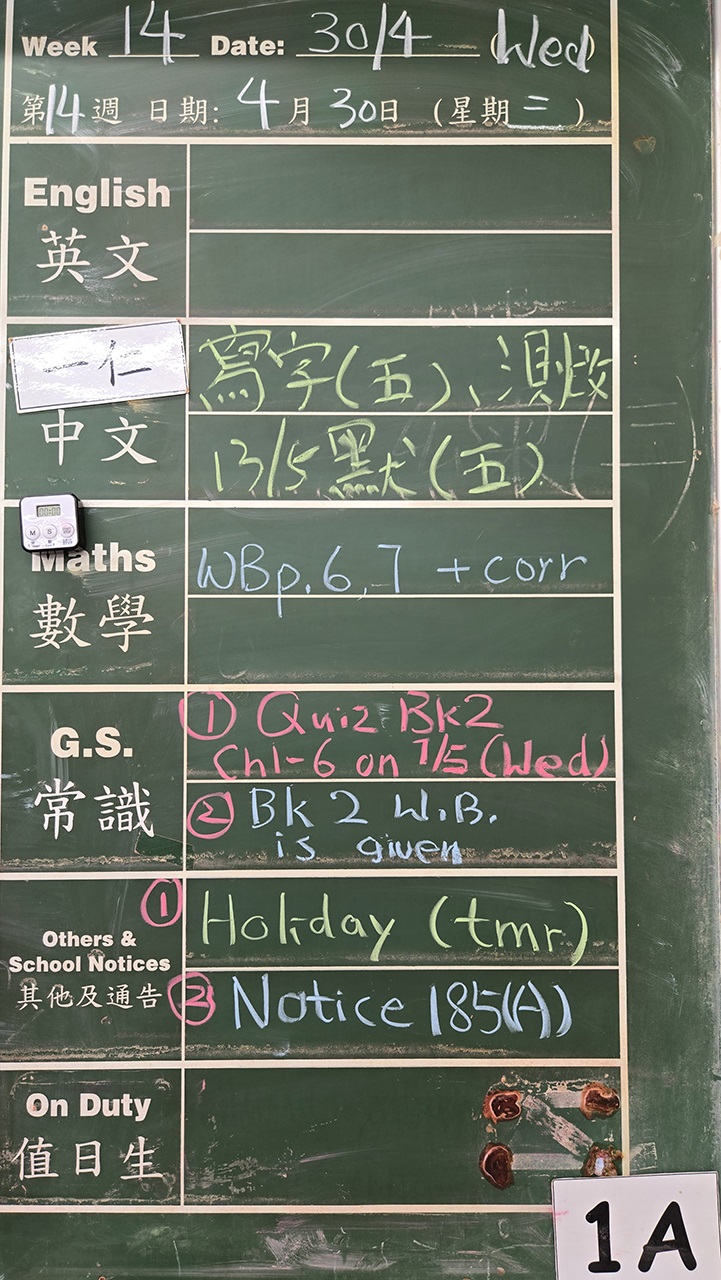 Week 14 Date: 30/4 (Wed)
第14週 日期: 4月30日 (星期三)
English
英文
一仁
中文
寫字(五)、測改
13/5默(五)
00:00
M S
Maths
數學
WBp.6,7 +corr
G.S.
常識
① Quiz Bk2
Ch1-6 on 7/5 (Wed)
② Bk 2 W.B.
is given
Others &
School Notices
其他及通告
① Holiday (tmr)
② Notice 185(A)
On Duty
值日生
1A